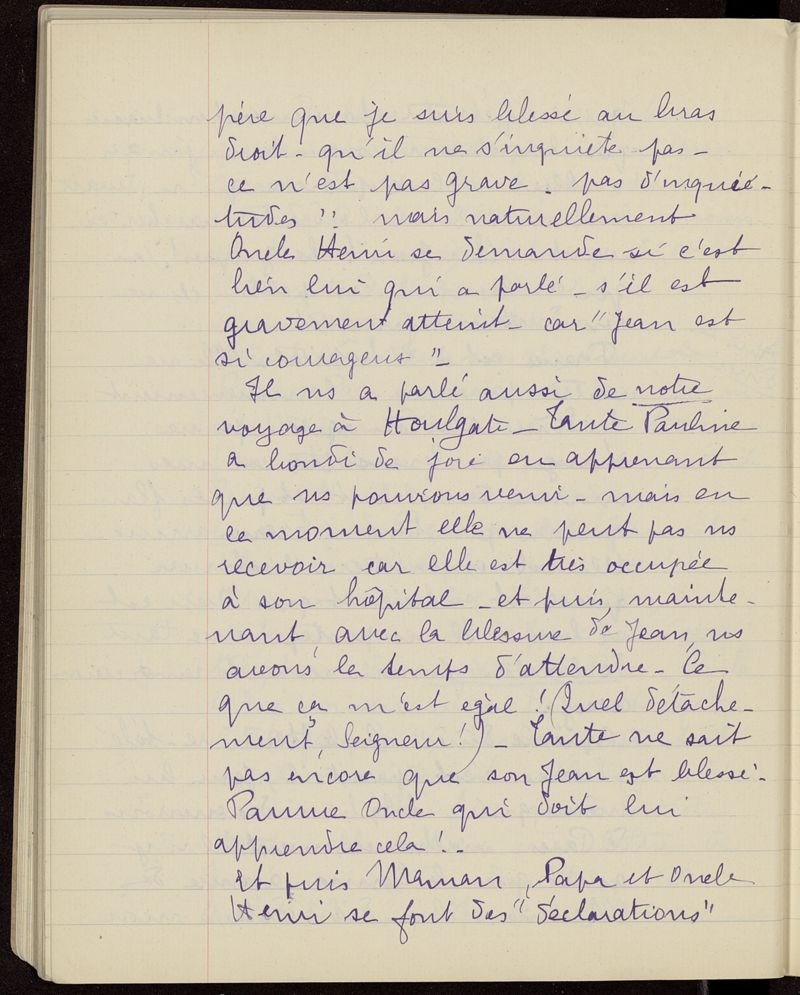 père que je suis blessé au bras
droit - qu'il ne s'inquiète pas -
ce n'est pas grave. pas d'inquié-
tudes !! mais naturellement
Oncle Henri se demande si c'est
bien lui qui a parlé - s'il est
gravement atteint - car "Jean est
si courageux" -
Il ns a parlé aussi de notre
voyage à Houlgate - Tante Pauline
a bondi de joie en apprenant
que ns pouvions venir - mais en
ce moment elle ne peut pas ns
recevoir car elle est très occupée
à son hôpital - et puis, mainte-
nant, avec la blessure de Jean, ns
avons le temps d'attendre - Ce
que ça m'est égal ! (Quel détache-
ment, Seigneur !) - Tante ne sait
pas encore que son Jean est blessé.
Pauvre Oncle qui doit lui
apprendre cela ! -
Et puis Maman, Papa et Oncle
Henri se font des "déclarations"